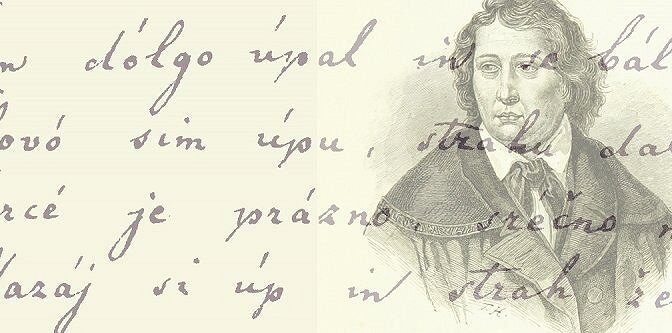 dólgo úpal in se bál
sim úpu, strahu dal
je prázno, sréčno
si úp in strah že